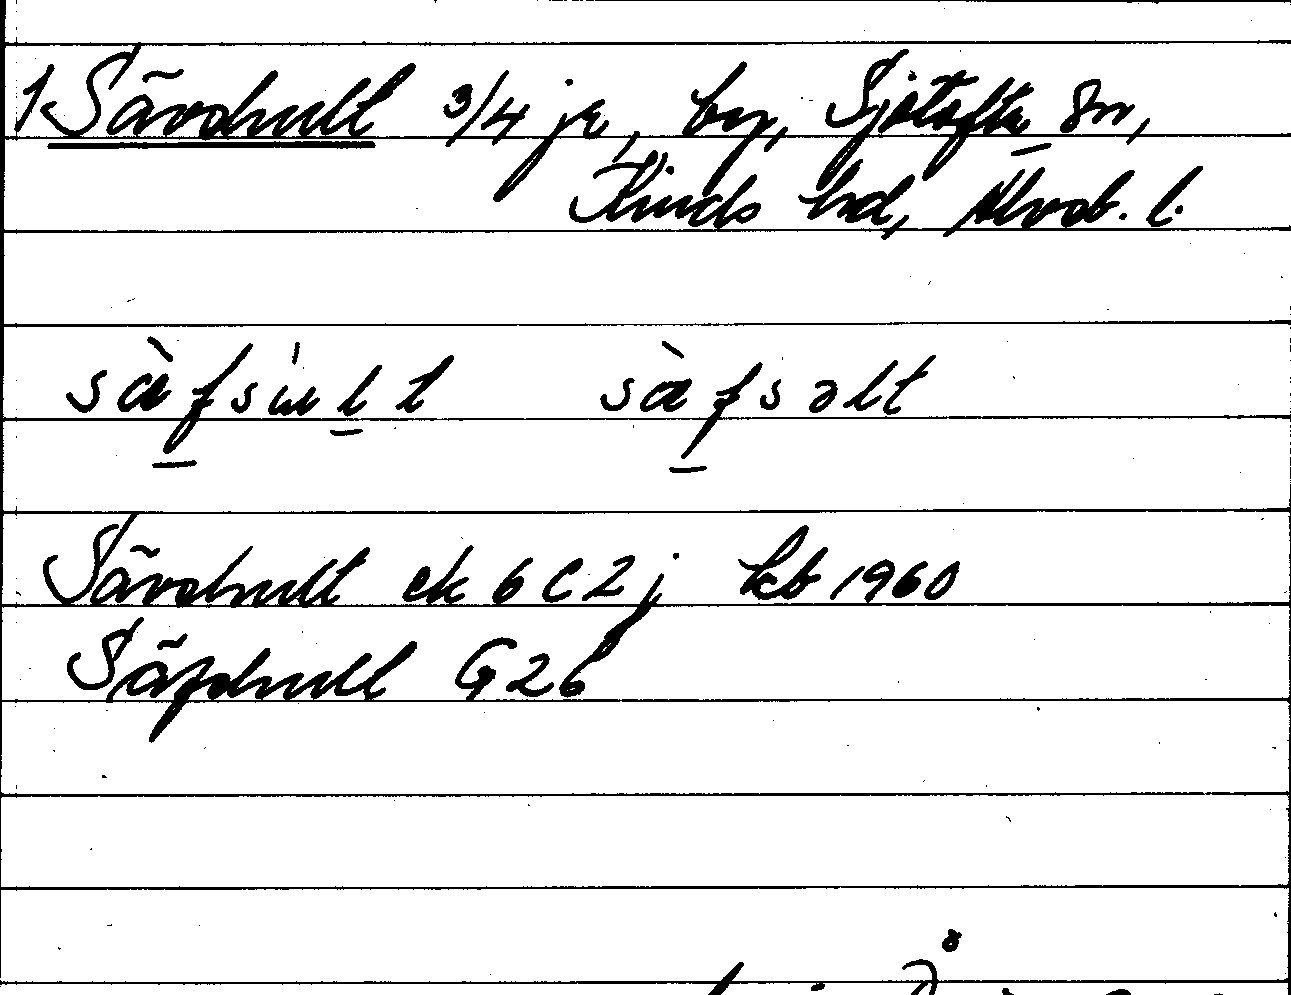 1 Sävshult 3/4 je, by, Sjötofta sn,
Kinds hd, Älvsb. l.
sàfsu̍lt sàfsəlt
Sävshult ek 6C2j kb 1960
Säfshult G26